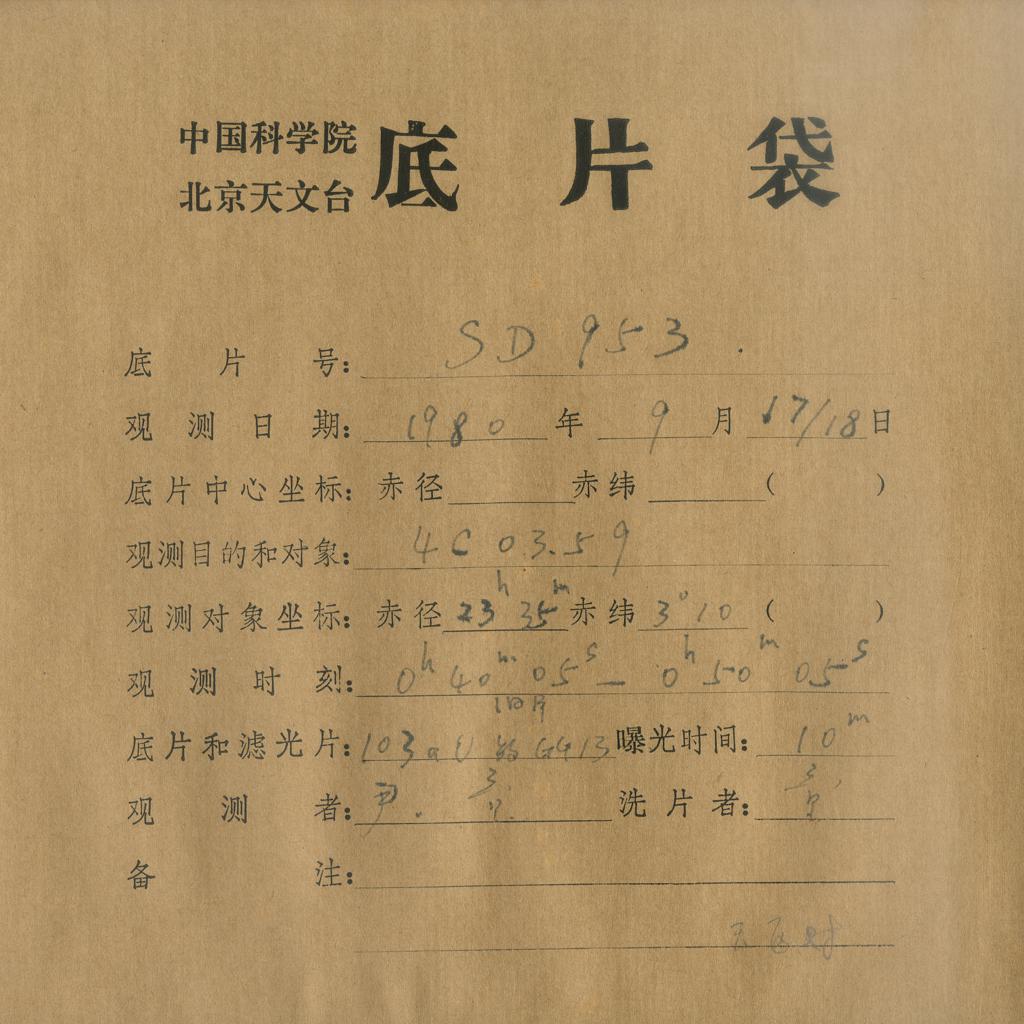 中国科学院
北京天文台
底片袋
底片号: SD 953.
观测日期: 1980年 9月 17/18日
底片中心坐标: 赤径 赤纬 ( )
观测目的和对象: 4C 03.59
观测对象坐标: 赤径 23h 35m 赤纬 3°10 ( )
观测时刻: 0h 40m 05s — 0h 50m 05s
底片和滤光片: 103a GG13 曝光时间: 10m
观测者: 洗片者:
备注: